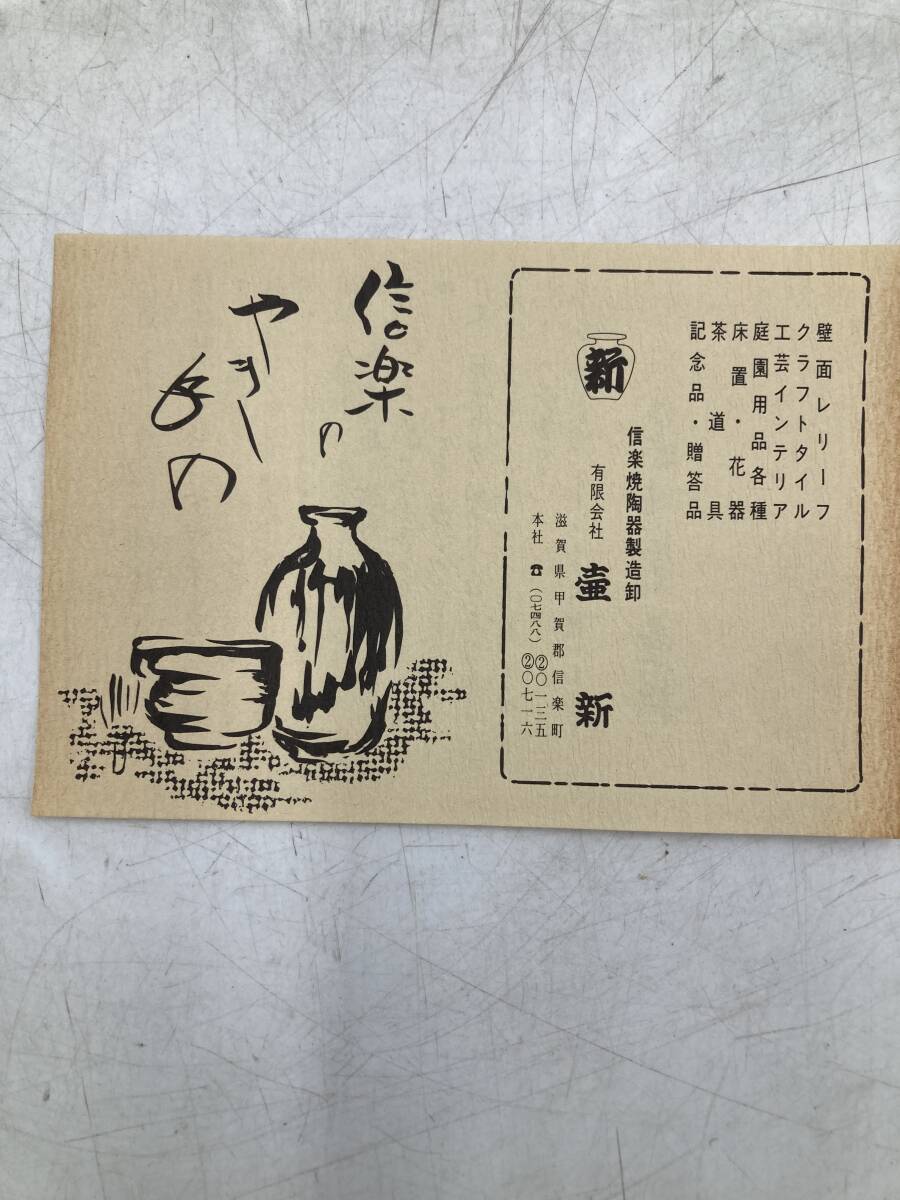 壁面レリーフ
クラフトタイル
工芸インテリア
庭園用品各種
床置・花器
茶道具
記念品・贈答品
信楽焼陶器製造卸
新
有限会社 壷新
滋賀県甲賀郡信楽町
本社 ☎(〇七四八八)②〇一三五
②〇七一六
信楽の
やき
もの